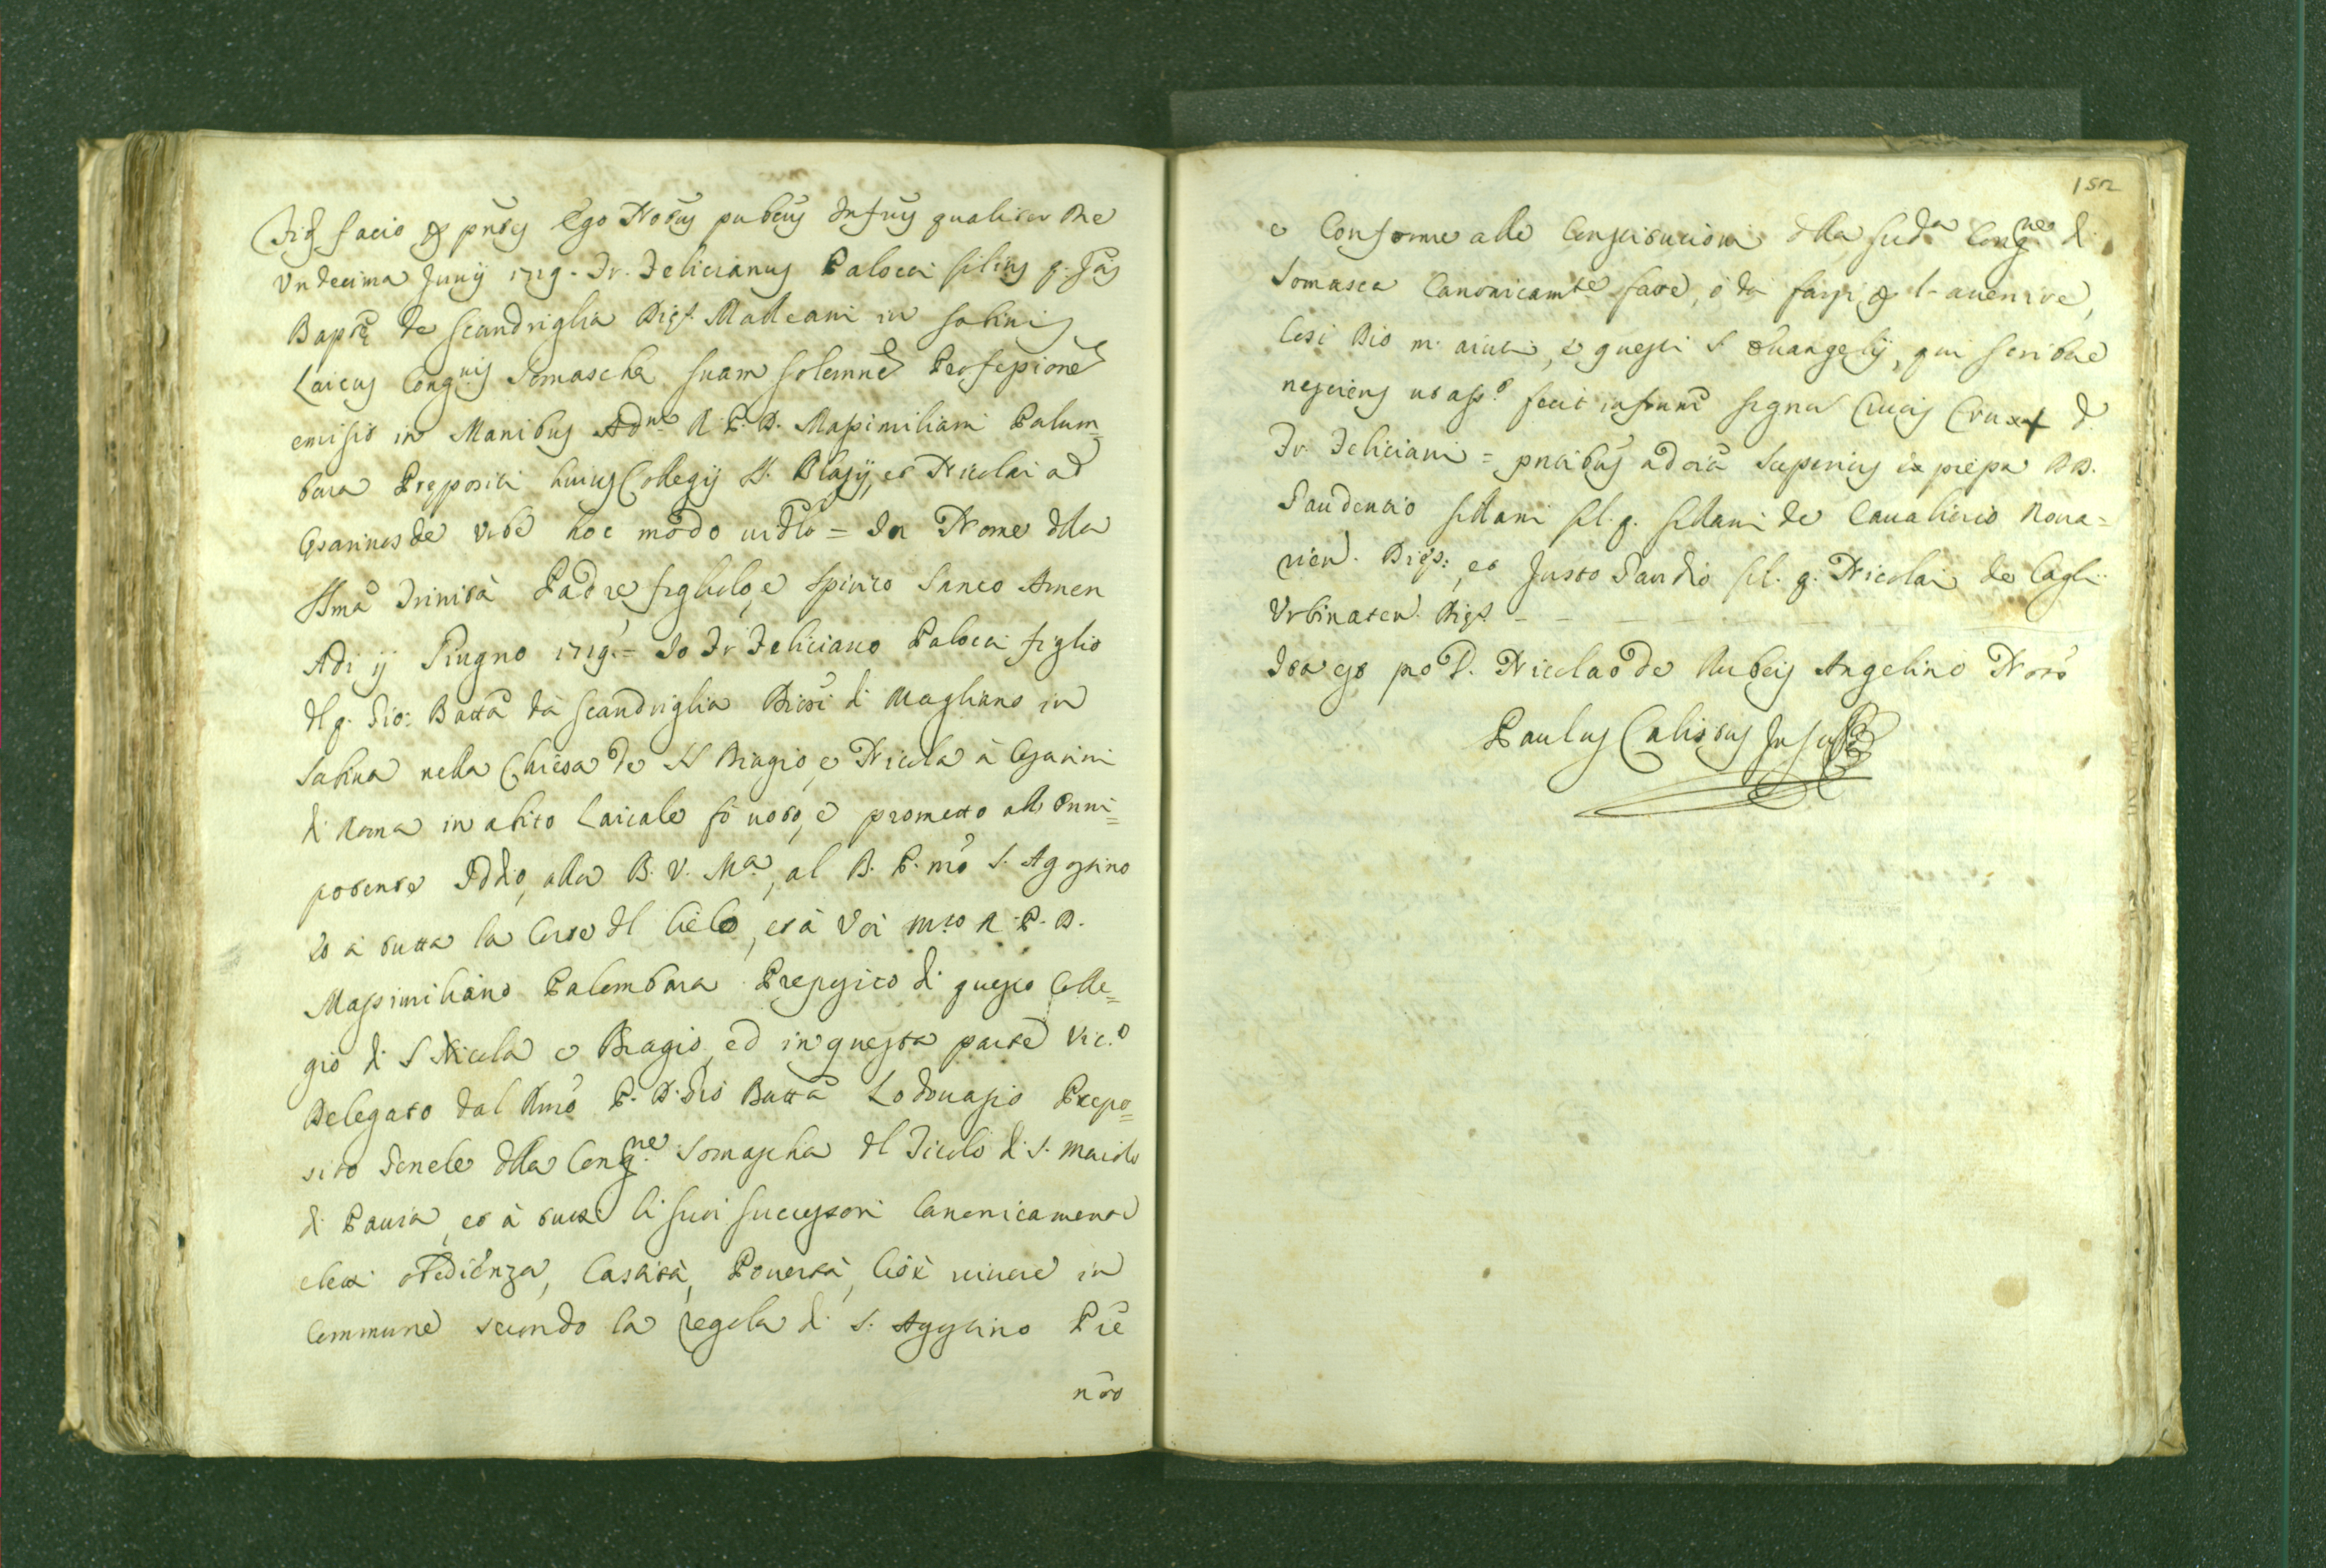 Fidē facio p̱ pn̄tes Ego Notūs pubcūs Infrūs qualiter Die
Undecima Junij 1719. Fr. Felicianus Palocci filius q. Jōis
Baptae de Scandriglia Dięs. Malleani in Sabinis
Laicus Congnis Somascha suam solemnē Professionē
emisit in Manibus Adm R. P. D. Massimiliani Palum=
bara Prępositi huius Collegij SS. Blasij, et Nicolai ad
Cęsarinos de Urbe hoc modo vidlt = In Nome dlla
SSma Trinità Padre figliolo, e Spirito Santo Amen
Adi ij Giugno 1719. = Io Fr Feliciano Palocci figlio
dl q. Gio: Batta da Scandriglia Diori di Magliano in
Sabina nella Chiesa de SS Biagio, e Nicola à Cesarini
di Roma in abito Laicale fò voto, e prometto all'Onni=
potente Iddio, alla B. V. Ma, al B. P. nrō S. Agostino
et à tutta la Corte dl Cielo, et à Voi mto R. P. D.
Massimiliano Palombara Preposito di questo Colle=
gio di S Nicola e Biagio, ed in questa parte Vic.o
Delegato dal Rmō P. D. Gio Batta Lodovasio Prepo=
sito Genele dlla Congne Somascha dl Titolo di S. Maiolo
di Pavia, et à tutti li suoi successori Canonicamente
eletti obedienza, Castità, Povertà, Cioè vivere in
Commune secondo la regola di S. Agostino Prē
nrō
152
e Conforme alle Constitutioni dlla sudа Congne di
Somasca Canonicamte fatte, ò da farsi p̱ l'avenire,
Cosi Dio m'aiuti, e questi S Evangelij, qui scribere
nesciens ut asso fecit infrum̄ signū Crucis Cru + d.
Fr Feliciani = pntibus ad oīa Superius expressa DD.
Gaudentio fil. q. de Cavalierio Nova=
rien. Dięs:, et Justo Gaudio fil. q. Nicolai de Cagli
Urbinaten Dięs
Ita est pro D. Nicolao de Rubeis Angelino Notō
Paulus Calistus